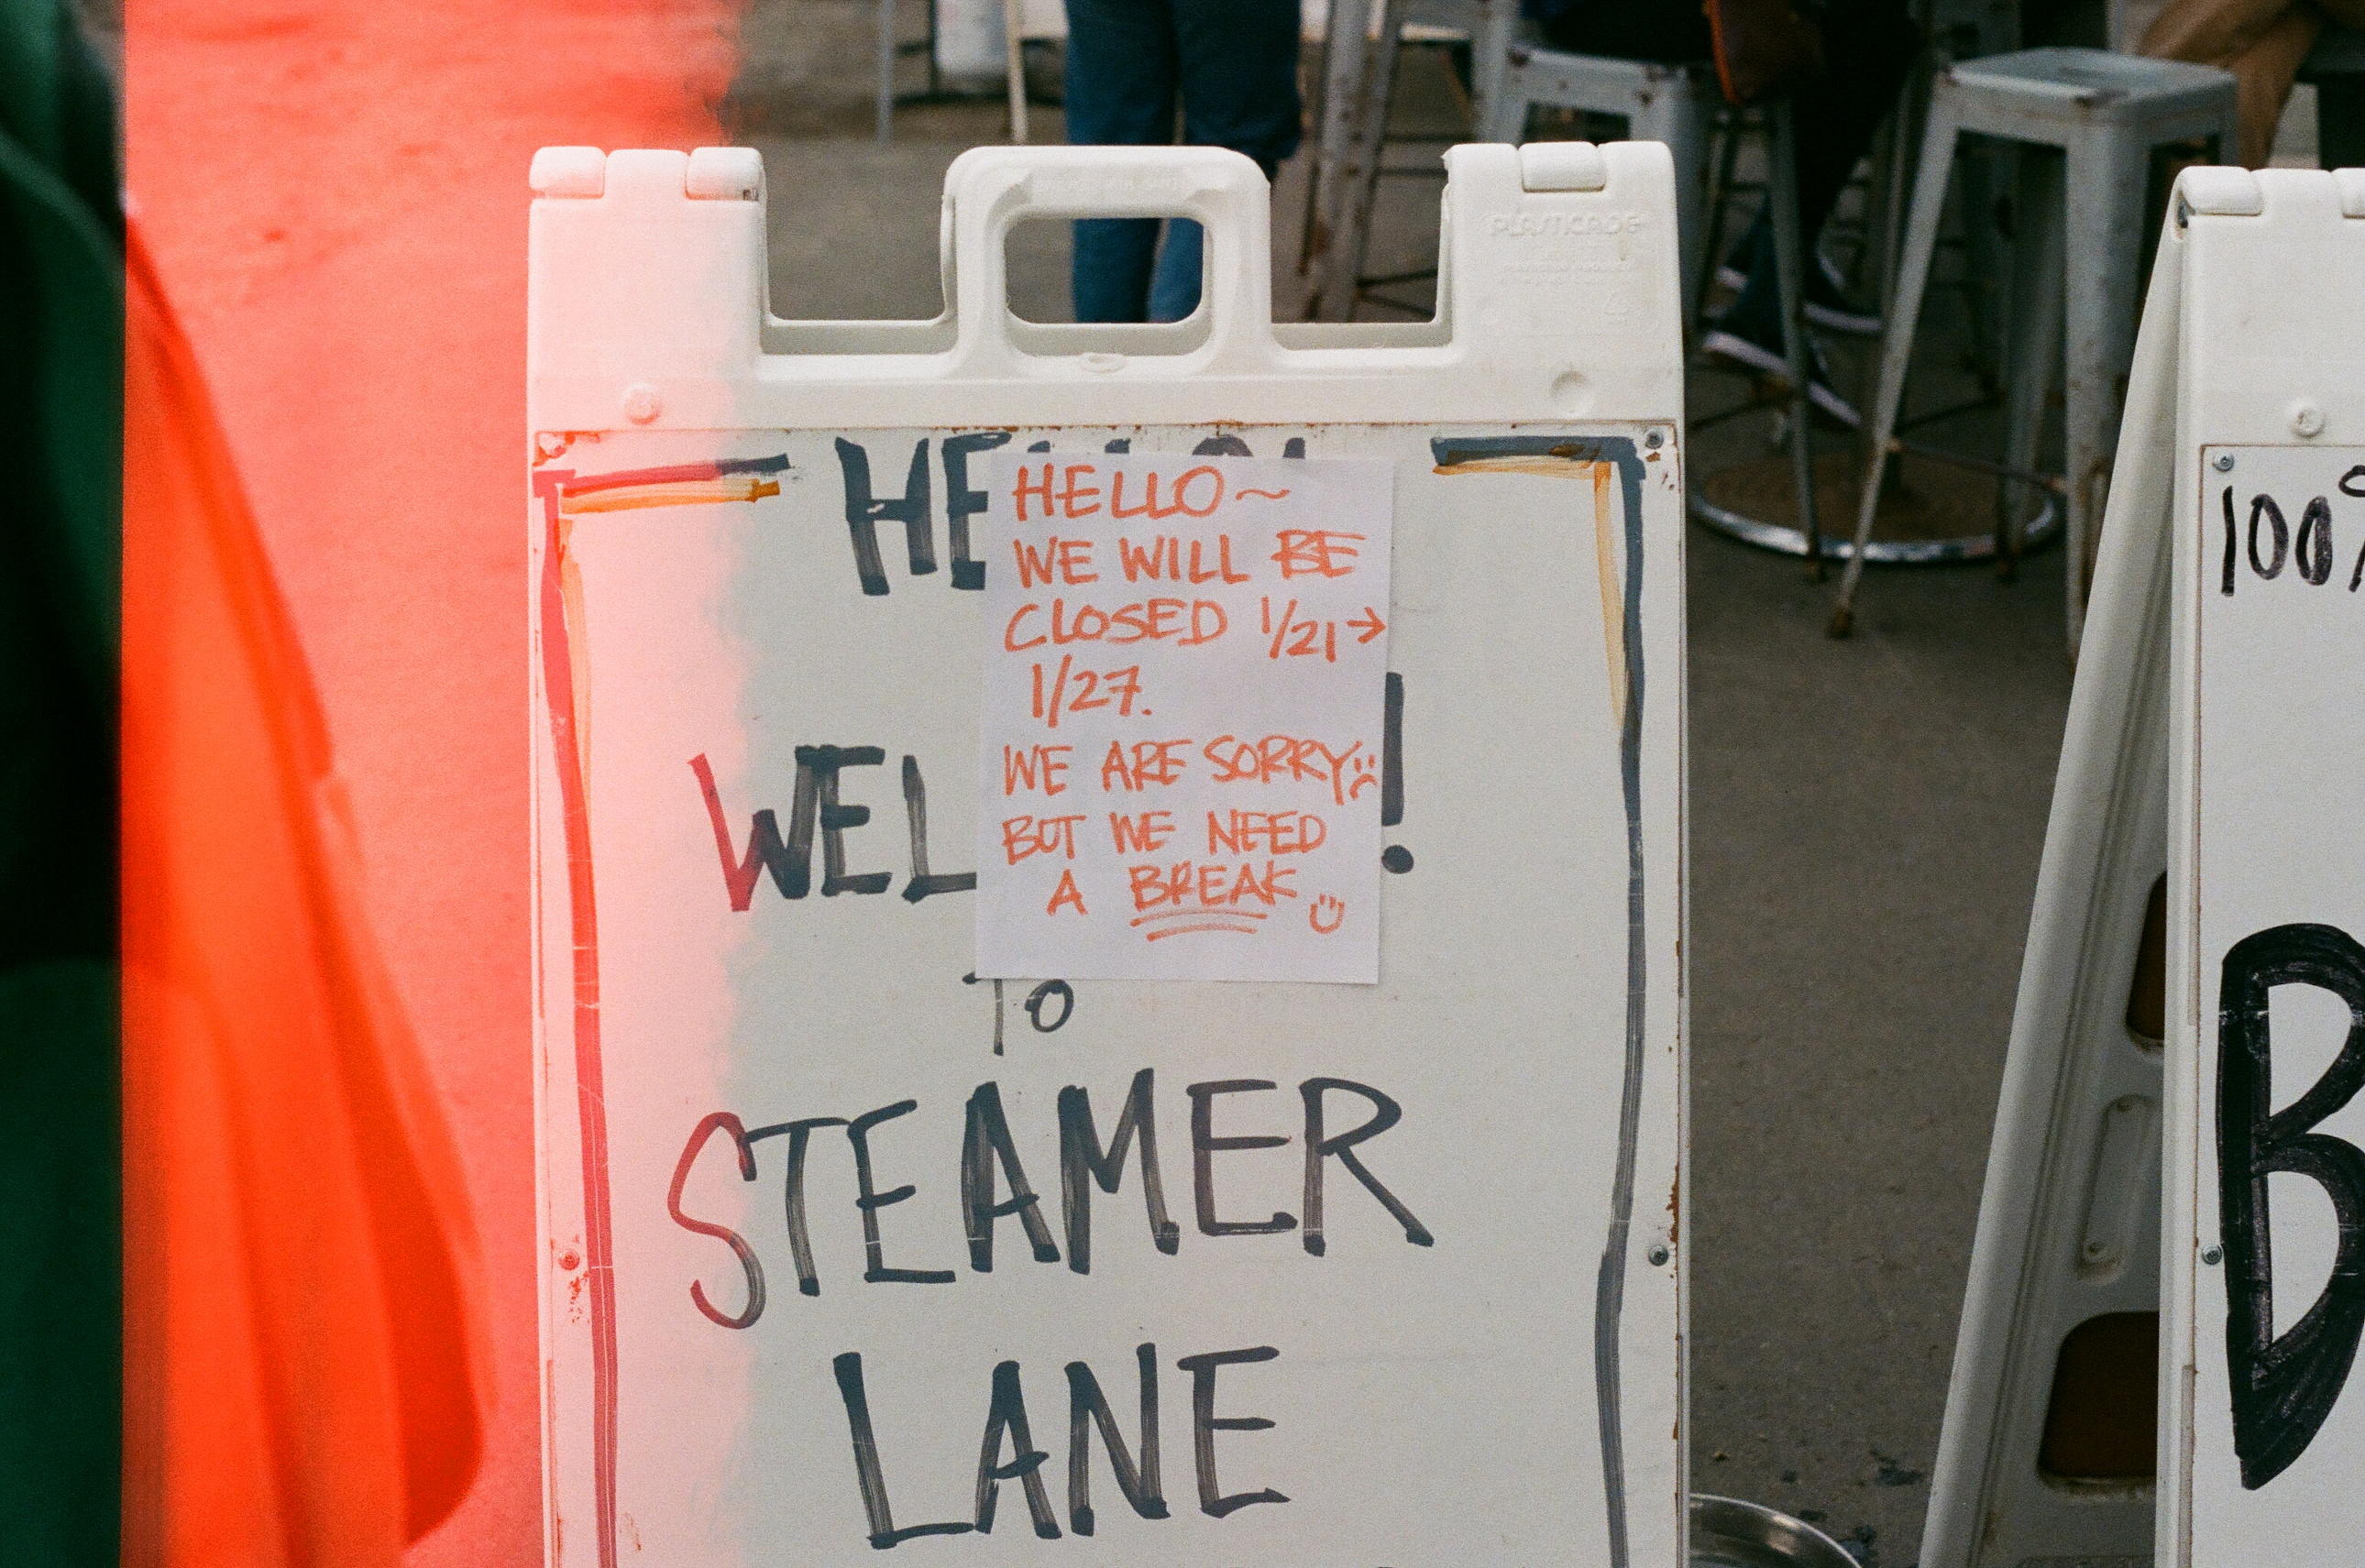 PLASTICADE
HE
HELLO~
WE WILL BE
CLOSED 1/21→
1/27.
WE ARE SORRY :(
BUT WE NEED
A BREAK :)
WEL !
TO
STEAMER
LANE
100%
B